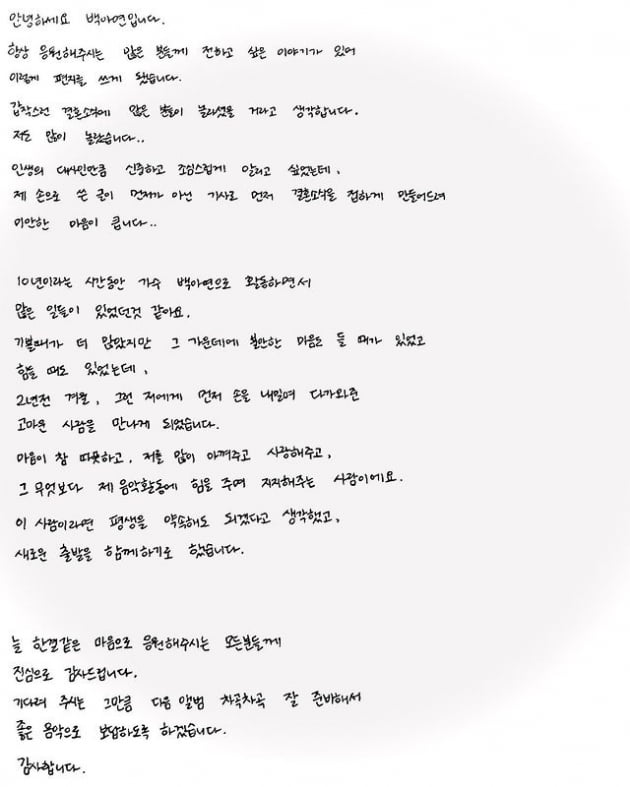 안녕하세요 백아연입니다.
항상 응원해주시는 많은 분들께 전하고 싶은 이야기가 있어
이렇게 편지를 쓰게 됐습니다.
갑작스런 결혼소식에 많은 분들이 놀라셨을 거라고 생각합니다.
저도 많이 놀랐습니다..
인생의 대사인만큼 신중하고 조심스럽게 알리고 싶었는데,
제 손으로 쓴 글이 먼저가 아닌 기사로 먼저 결혼소식을 접하게 만들어드려
미안한 마음이 큽니다..
10년이라는 시간동안 가수 백아연으로 활동하면서
많은 일들이 있었던것 같아요.
기쁠때가 더 많았지만 그 가운데에 불안한 마음도 들 때가 있었고
힘들 때도 있었는데,
2년전 겨울, 그런 저에게 먼저 손을 내밀며 다가와준
고마운 사람을 만나게 되었습니다.
마음이 참 따뜻하고, 저를 많이 아껴주고 사랑해주고,
그 무엇보다 제 음악활동에 힘을 주며 지지해주는 사람이에요.
이 사람이라면 평생을 약속해도 되겠다고 생각했고,
새로운 출발을 함께하기로 했습니다.
늘 한결같은 마음으로 응원해주시는 모든분들께
진심으로 감사드립니다.
기다려 주시는 그만큼 다음 앨범 차곡차곡 잘 준비해서
좋은 음악으로 보답하도록 하겠습니다.
감사합니다.